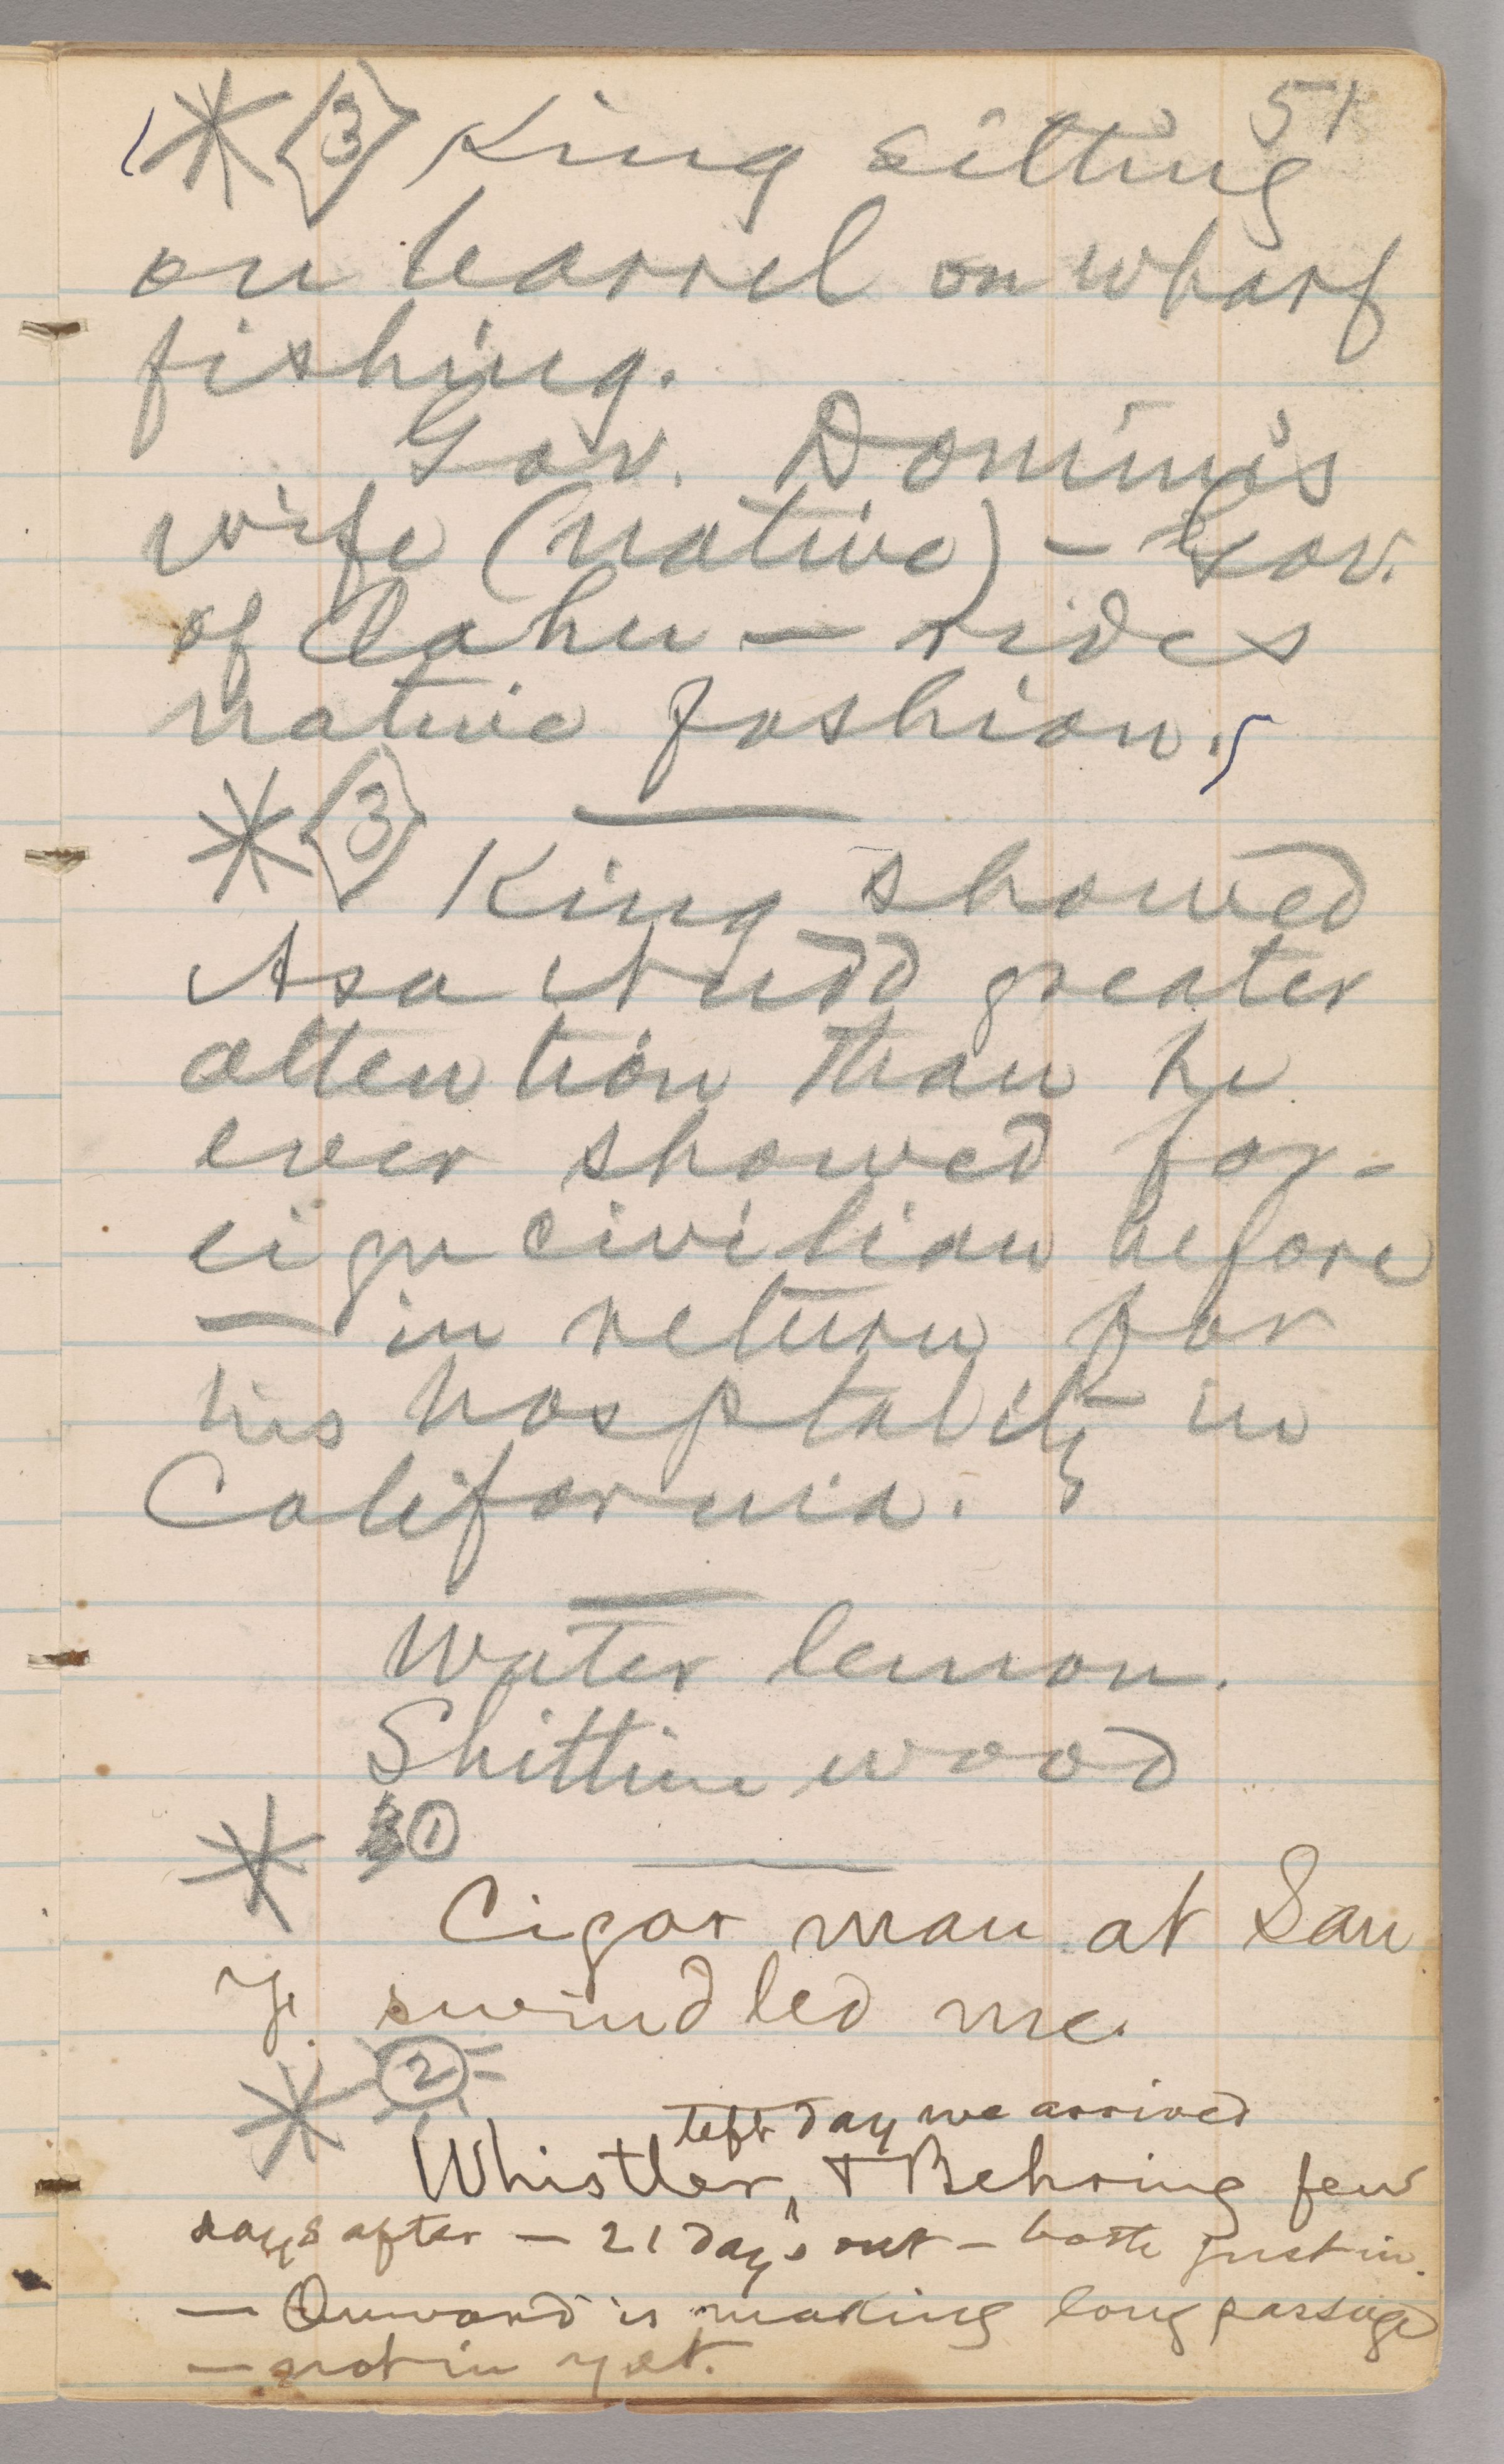 51
* ③ King sitting
on barrel on wharf
fishing.
Gov. Dominis
wife (native) — Gov.
of Oahu — rides
native fashion.
* ③
King showed
Asa Nudd greater
attention than he
ever showed for-
eign civilian before
— in return for
his hosptality in
California.
Water lemon.
Shittim wood
* ①
Cigar man at San
F. swindled me.
* ②
left day we arrived
Whistler, & Behring few
days after — 21 days out — both just in.
— Onward is making long passage
— not in yet.